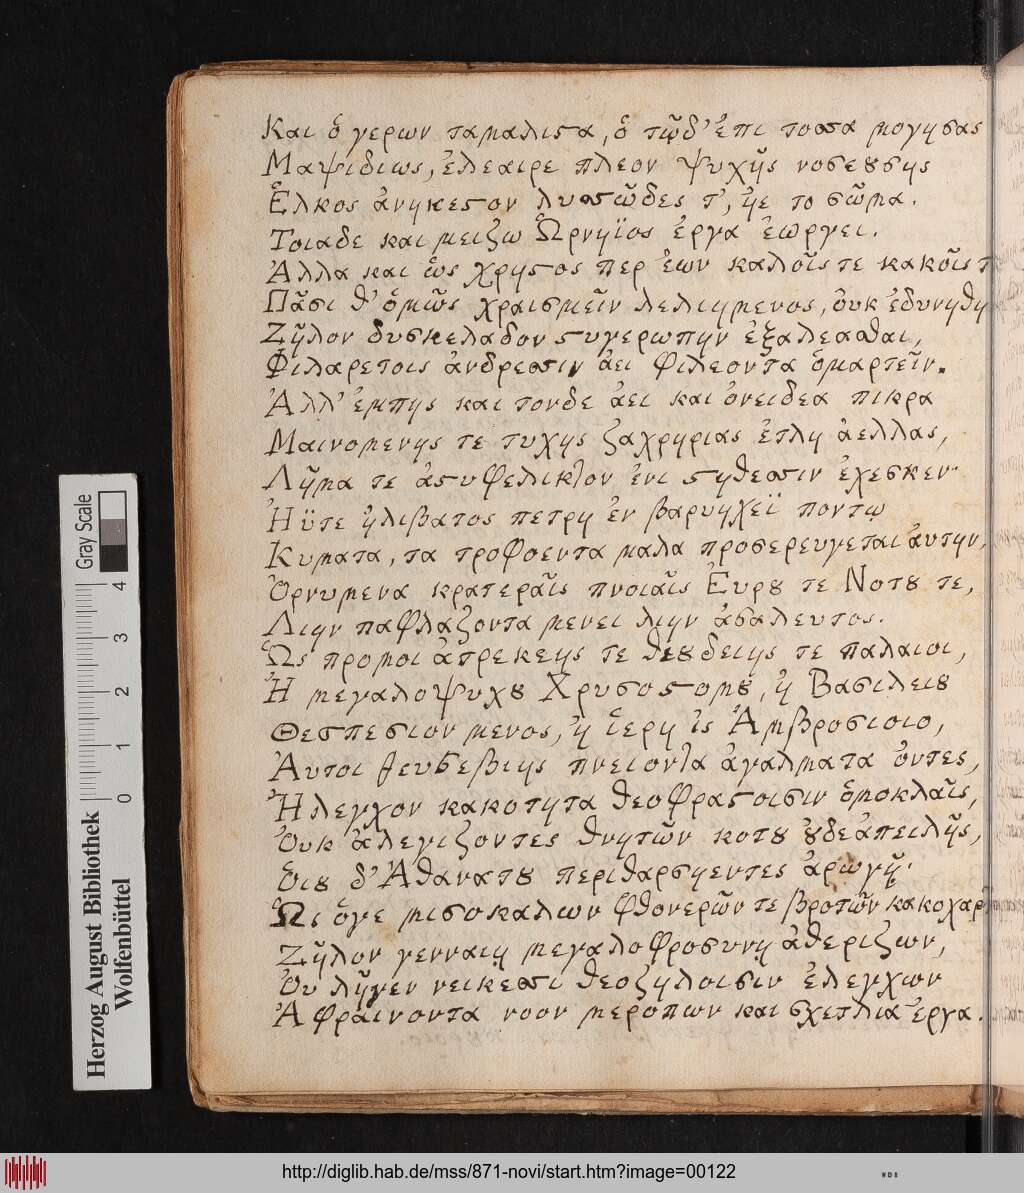 Και ὁ γερων ταμαλιϛα, ὁ τῷδ’ ἐπι τοσσα μογησας
Μαψιδιως, ἐλεαιρε πλεον ψυχῆς νοσεȣσης
Ἑλκος ἀνηκεϛον λυσσῶδες τ’, ἠε το σῶμα.
Τοιαδε και μειζω Ὠρνηϊος ἐργα ἐωργει.
Ἀλλα και ὡς χρηϛος περ ἐων καλοῖς τε κακοῖς
Πᾶσι θ’ ὁμῶς χραισμεῖν λελιημενος, ὀυκ ἐδυνηθη
Ζῆλον δυσκελαδον ϛυγερωπην ἐξαλεασθαι,
Φιλαρετοις ἀνδρεσσιν ἀει φιλεοντα ὁμαρτεῖν.
Ἀλλ’ ἐμπης και τονδε ἀει και ὀνειδεα πικρα
Μαινομενης τε τυχης ζαχρηριας ἐτλη ἀελλας,
Λῆμα τε ἀϛυφελικτον ἐνι ϛηθεσσιν ἐχεσκεν·
Ἠϋτε ἠλιβατος πετρη ἐν βαρυηχεϊ ποντῳ
Κυματα, τα τροφοεντα μαλα προσερευγεται ἀυτην,
Ὀρνυμενα κρατεραῖς πνοιαῖς Ἐυρȣ τε Νοτȣ τε,
Λιην παφλαζοντα μενει λιην ἀσαλευτος.
Ὡς προμοι ἀτρεκεης τε θεȣδειης τε παλαιοι,
Ἠ μεγαλοψυχȣ Χρυσοϛομȣ, ἠ Βασιλειȣ
Θεσπεσιον μενος, ἠ ἱερη ἰς Ἀμβροσιοιο,
Ἀυτοι θευσεβιης πνειοντα ἀγαλματα ὀντες,
Ἠλεγχον κακοτητα θεοφραϛοισιν ὁμοκλαῖς,
Ὀυκ ἀλεγιζοντες θνητῶν κοτȣ ȣδε ἀπειλῆς,
Ὁιȣ δ’ Ἀθανατȣ περιθαρσηεντες ἀρωγῇ·
Ὡι ὁγε μισοκαλων φθονερῶν τε βροτῶν
Ζῆλον γενναιῃ μεγαλοφροσυνῃ ἀθεριζων,
Ὀυ λῆγεν νεικεσσι θεοζηλοισιν ἐλεγχων
Ἀφραινοντα νοον μεροπων και σχετλια ἐργα.
Herzog August Bibliothek
Wolfenbüttel
0 1 2 3 4
Gray Scale
http://diglib.hab.de/mss/871-novi/start.htm?image=00122